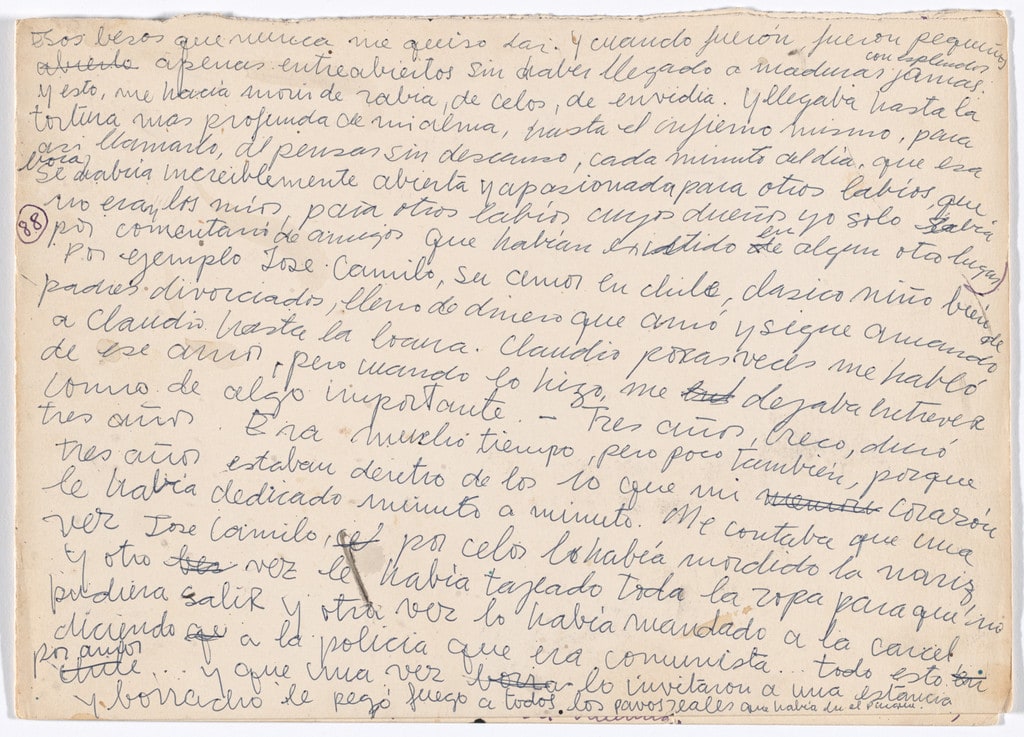 Esos besos que nunca me quiso dar. Y cuando fuerón, fueron pequeños
abierto apenas entreabiertos sin haber llegado a madurar jamas.
con esplendor
Y esto, me hacia morir de rabia, de celos, de envidia. Y llegaba hasta la
tortura mas profunda de mi alma, hasta el infierno mismo, para
asi llamarlo, al pensar sin descanso, cada minuto del dia, que esa
boca
se habria increiblemente abierta y apasionada para otros labios, que
no eran los mios, para otros labios cuyos dueños yo solo sabia
88
por comentario de amigos que habian existido en algun otro lugar
Por ejemplo Jose Camilo, su amor en chile, clasico niño bien de
padres divorciados, lleno de dinero que amó y sigue amando
a Claudio hasta la locura. Claudio pocas veces me habló
de ese amor, pero cuando lo hizo, me dejaba entrever
como de algo importante — Tres años, creco, duró
tres años. Era mucho tiempo, pero poco también, porque
tres años estaban dentro de los lo que mi memoria corazón
le habia dedicado minuto a minuto. Me contaba que una
vez Jose Camilo, por celos lo había mordido la nariz,
Y otro bez vez le habia tajeado toda la ropa para que no
pudiera salir y otra vez lo habia mandado a la carcel
diciendo qe a la policia que era comunista... todo esto en
por amor
chile... y que una vez borra lo invitaron a una estancia
y borracho le pegó fuego a todos los pavos reales que habia en el